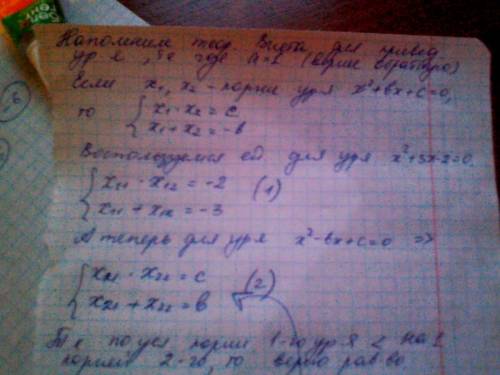 Напомним теор. Виета для привед.
ур-я, т.е где a=1 (верно обратную)
Если x₁, x₂ - корни ур-я x²+bx+c=0,
то { x₁·x₂ = c
x₁+x₂ = -b
Воспользуемся ей для ур-я x²+3x-2=0.
{ x₁₁·x₁₂ = -2 (1)
x₁₁+x₁₂ = -3
А теперь для ур-я x²-bx+c=0 =>
{ x₂₁·x₂₂ = c (2)
x₂₁+x₂₂ = b
Т.к по усл корни 1-го ур-я < на 1
корней 2-го, то верно рав-во